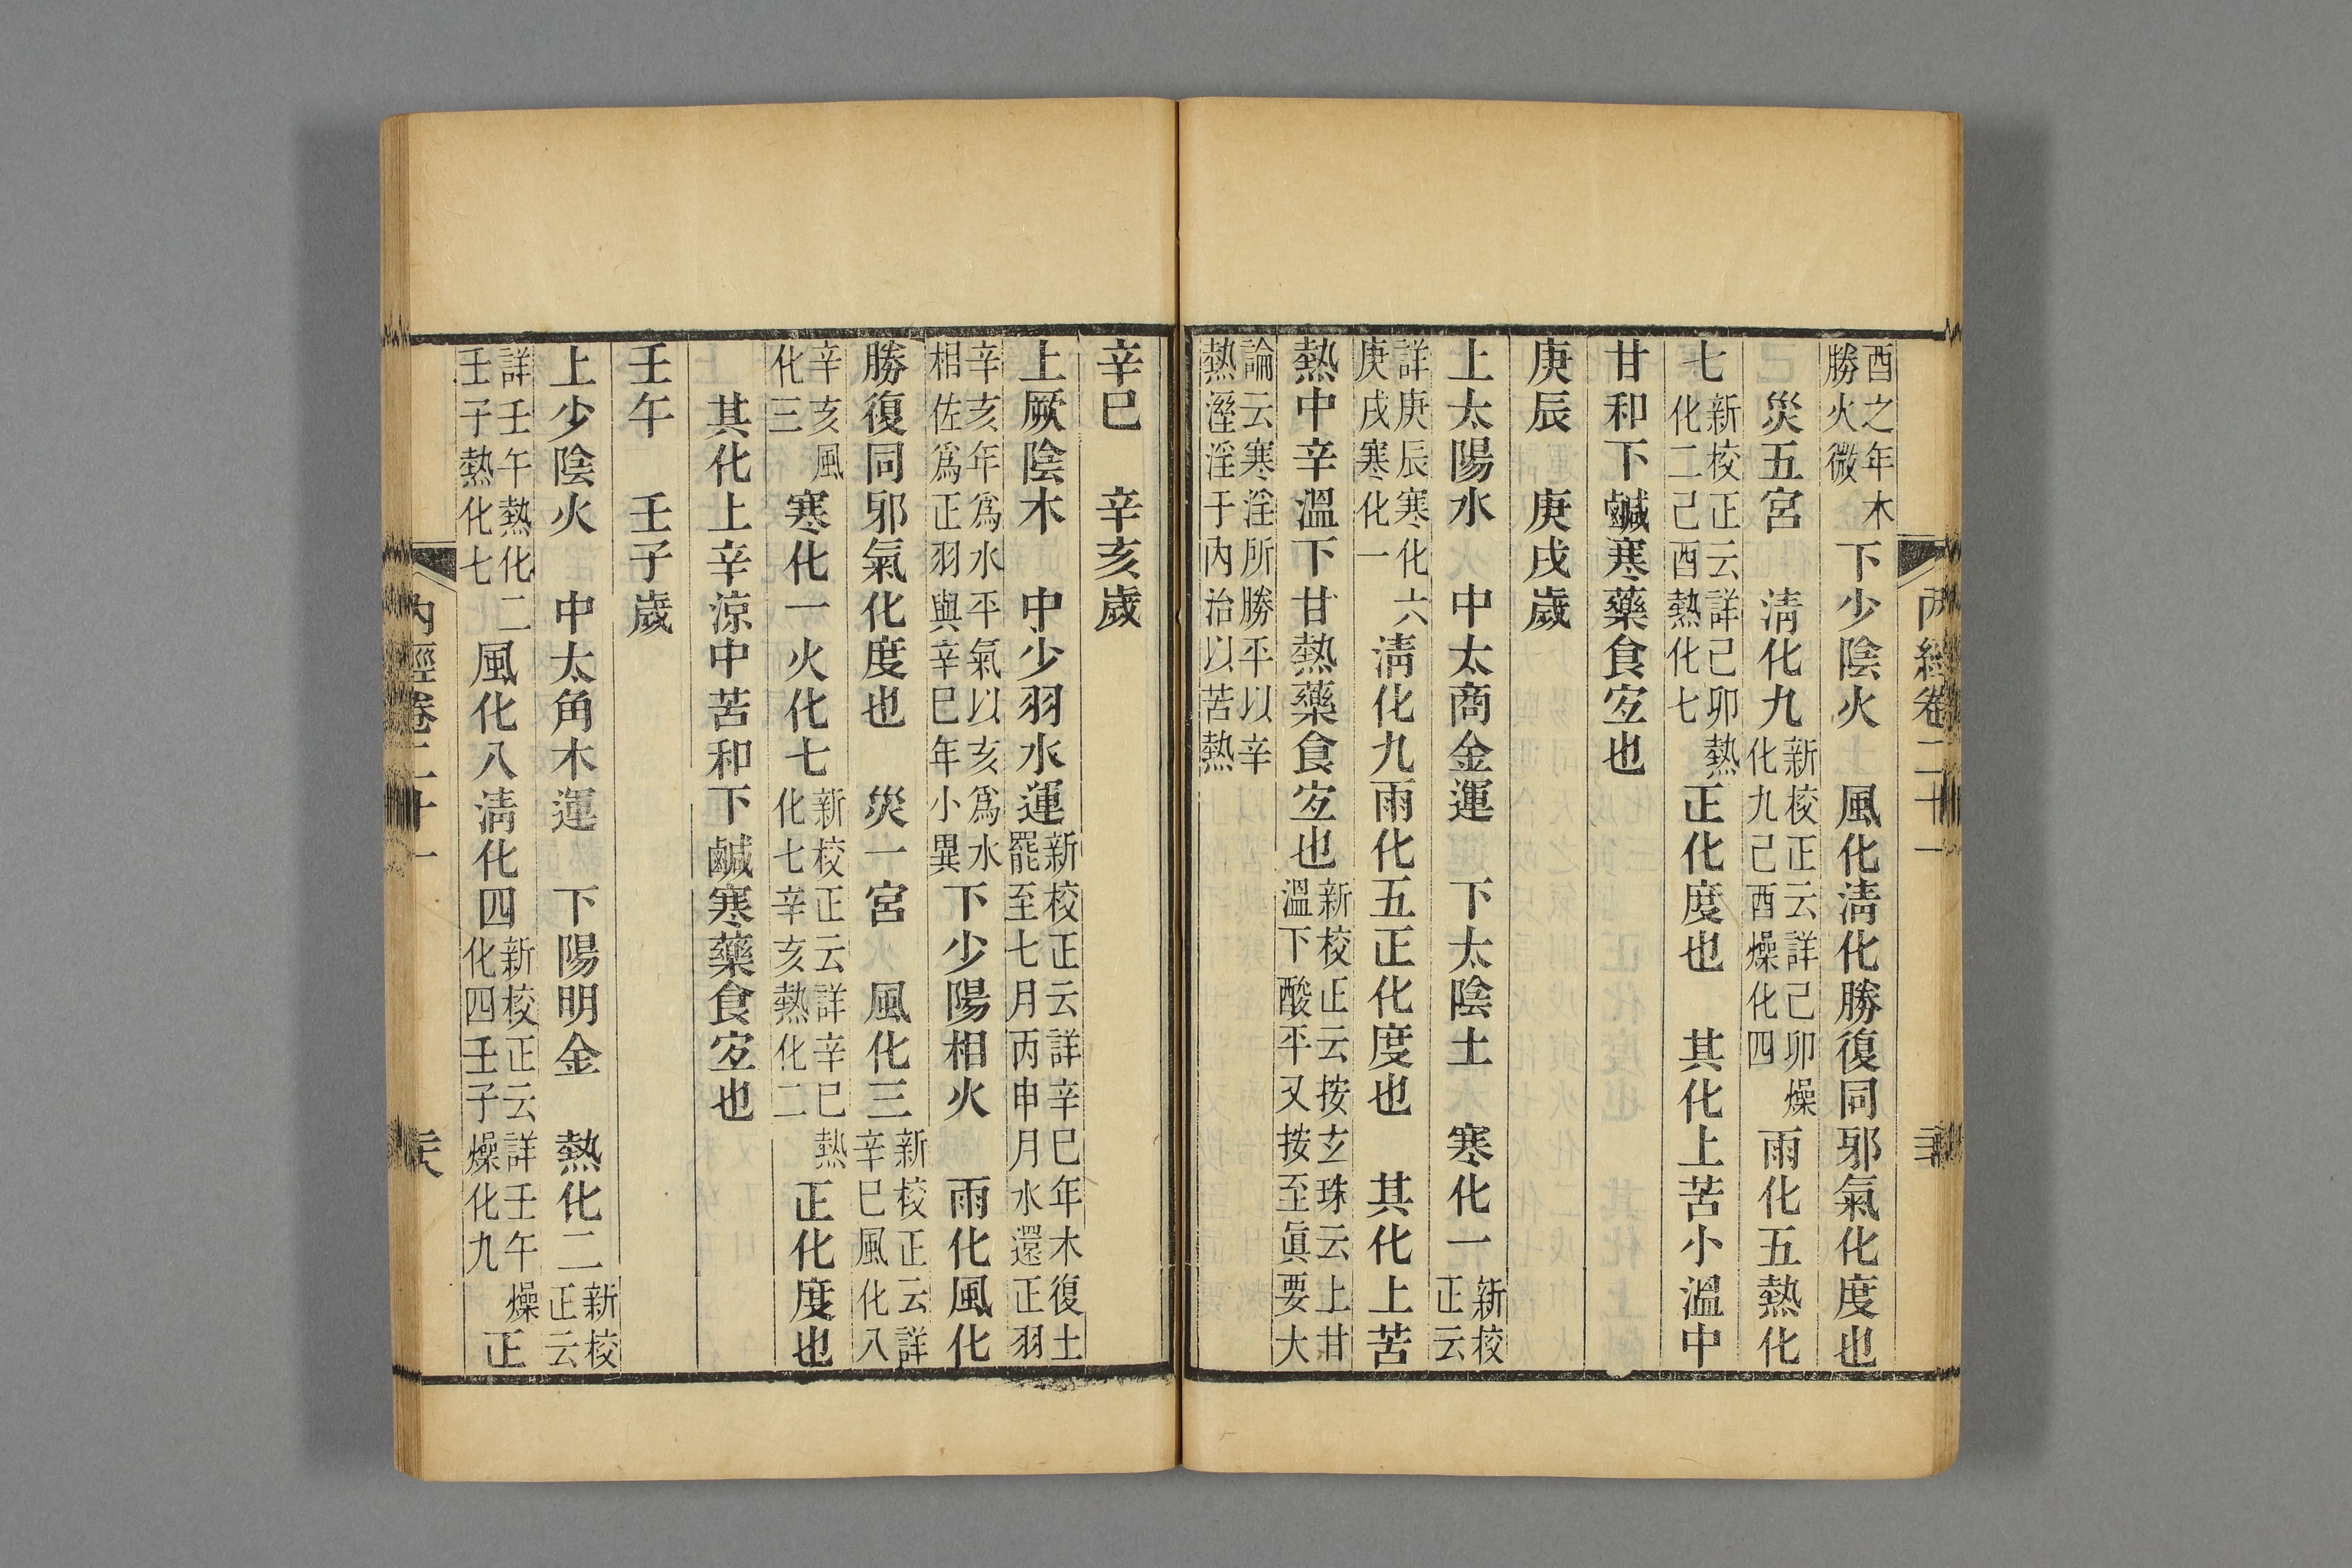 酉之年木勝火微下少陰火　風化淸化勝復同邪氣化度也
災五宮　淸化九新校正云詳己卯燥化九己酉燥化四雨化五熱化
七新校正云詳己卯熱化二己酉熱化七正化度也　其化上苦小溫中
甘和下鹹寒藥食宜也
庚辰　庚戌歲
上太陽水　中太商金運　下太陰土　寒化一新校正云
詳庚辰寒化六庚戌寒化一淸化九雨化五正化度也　其化上苦
熱中辛溫下甘熱藥食宜也新校正云按玄珠云上甘溫下酸平又按至眞要大
論云寒淫所勝平以辛熱溼淫于內治以苦熱
內經卷二十一
辛巳　辛亥歲
上厥陰木　中少羽水運新校正云詳辛巳年木復土罷至七月丙申月水還正羽
辛亥年爲水平氣以亥爲水相佐爲正羽與辛巳年小異下少陽相火　雨化風化
勝復同邪氣化度也　災一宮　風化三新校正云詳辛巳風化八
辛亥風化三寒化一火化七新校正云詳辛巳熱化七辛亥熱化二正化度也
其化上辛涼中苦和下鹹寒藥食宜也
壬午　壬子歲
上少陰火　中太角木運　下陽明金　熱化二新校正云
詳壬午熱化二壬子熱化七風化八淸化四新校正云詳壬午燥化四壬子燥化九正
內經卷二十一